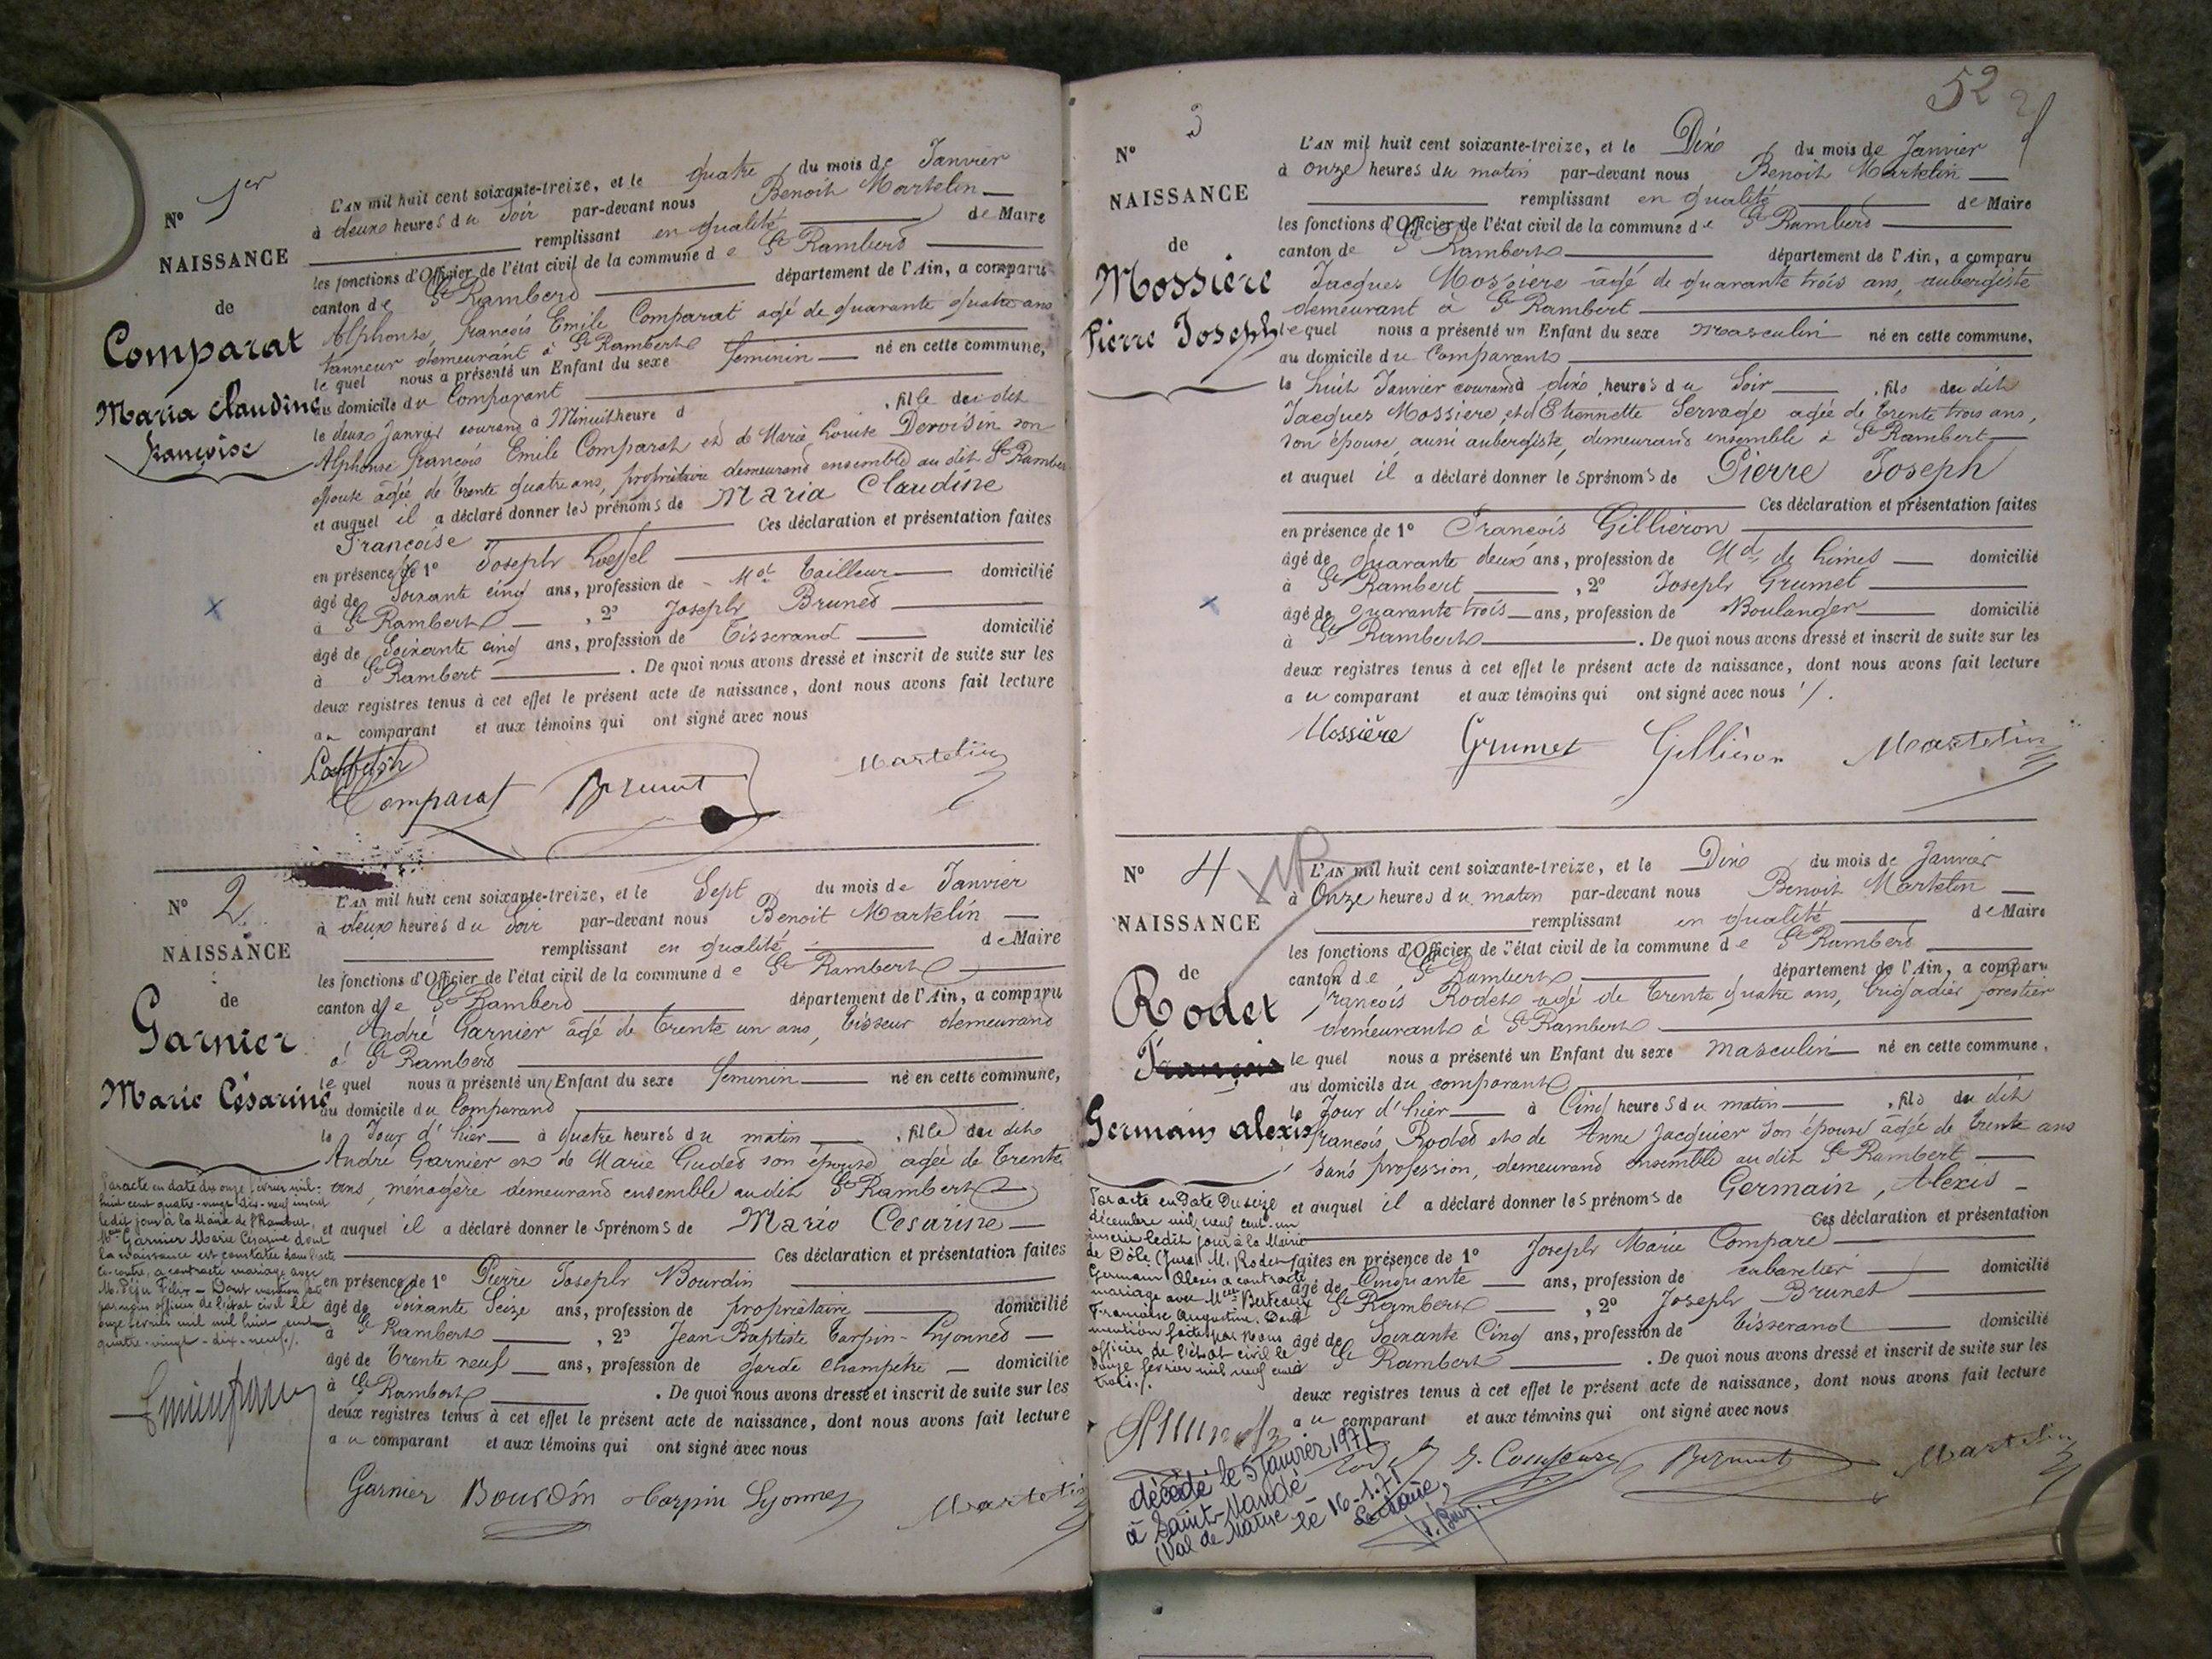 N° 1er
NAISSANCE
de
Comparat
Maria Claudine
françoise
L'AN mil huit cent soixante-treize, et le quatre du mois de Janvier
à deux heures du Soir par-devant nous Benoit Martelin
remplissant en qualité de Maire
les fonctions d'Officier de l'état civil de la commune de St Rambert
canton de St Rambert département de l'Ain, a comparu
Alphonse, françois Emile Comparat agé de quarante quatre ans
tanneur demeurant à St Rambert
le quel nous a présenté un Enfant du sexe feminin né en cette commune,
au domicile du Comparant
le deux Janvier courant à Minuit heure d , fille du dit
Alphonse françois Emile Comparat et de Marie Louise Deroisin son
épouse agée de trente quatre ans, propriétaire demeurant ensemble au dit St Rambert
et auquel il a déclaré donner les prénoms de Maria Claudine
Françoise Ces déclaration et présentation faites
en présence de 1° Joseph Loeffel
âgé de Soixante cinq ans, profession de Md tailleur domicilié
à St Rambert , 2° Joseph Brunet
âgé de Soixante cinq ans, profession de Tisserand domicilié
à St Rambert . De quoi nous avons dressé et inscrit de suite sur les
deux registres tenus à cet effet le présent acte de naissance, dont nous avons fait lecture
au comparant et aux témoins qui ont signé avec nous
Comparat Brunet Martelin
N° 2
NAISSANCE
de
Garnier
Marie Césarine
L'AN mil huit cent soixante-treize, et le Sept du mois de Janvier
à deux heures du Soir par-devant nous Benoit Martelin
remplissant en qualité de Maire
les fonctions d'Officier de l'état civil de la commune de St Rambert
canton de St Rambert département de l'Ain, a comparu
André Garnier âgé de trente un ans, tisseur demeurant
à St Rambert
le quel nous a présenté un Enfant du sexe feminin né en cette commune,
au domicile du Comparant
le Jour d'hier à quatre heures du matin , fille du dit
André Garnier et de Marie Gudet son épouse agée de trente
ans, ménagère demeurant ensemble au dit St Rambert
et auquel il a déclaré donner les prénoms de Marie Cesarine
Ces déclaration et présentation faites
en présence de 1° Pierre Joseph Bourdin
âgé de Soixante Seize ans, profession de propriétaire domicilié
à St Rambert , 2° Jean Baptiste Carpin-Lyonnet
âgé de trente neuf ans, profession de garde champêtre domicilié
à St Rambert . De quoi nous avons dressé et inscrit de suite sur les
deux registres tenus à cet effet le présent acte de naissance, dont nous avons fait lecture
au comparant et aux témoins qui ont signé avec nous
Garnier Bourdin Carpin Lyonnet Martelin
Par acte en date du onze février mil
huit cent quatre-vingt-dix-neuf inscrit
ledit jour à la Mairie de St Rambert,
Melle Garnier Marie Césarine dont
la naissance est constatée dans l'acte
ci-contre, a contracté mariage avec
M. Péju Félix – Dont mention faite
par nous officier de l'état civil le
onze février mil mil huit cent
quatre-vingt-dix-neuf ./.
52
2
N° 3
NAISSANCE
de
Mossière
Pierre Joseph
L'AN mil huit cent soixante-treize, et le Dix du mois de Janvier
à onze heures du matin par-devant nous Benoit Martelin
remplissant en qualité de Maire
les fonctions d'Officier de l'état civil de la commune de St Rambert
canton de St Rambert département de l'Ain, a comparu
Jacques Mossiere agé de quarante trois ans, aubergiste
demeurant à St Rambert
le quel nous a présenté un Enfant du sexe masculin né en cette commune,
au domicile du Comparant
le huit Janvier courant à dix heures du Soir , fils du dit
Jacques Mossiere et d'Etiennette Servage agée de trente trois ans,
son épouse, aussi aubergiste, demeurant ensemble à St Rambert
et auquel il a déclaré donner les prénoms de Pierre Joseph
Ces déclaration et présentation faites
en présence de 1° François Gilliéron
âgé de quarante deux ans, profession de Md de limes domicilié
à St Rambert , 2° Joseph Grumet
âgé de quarante trois ans, profession de Boulanger domicilié
à St Rambert . De quoi nous avons dressé et inscrit de suite sur les
deux registres tenus à cet effet le présent acte de naissance, dont nous avons fait lecture
au comparant et aux témoins qui ont signé avec nous ./.
Mossière Grumet Gilliéron Martelin
N° 4
NAISSANCE
de
Rodet
François
Germain alexis
L'AN mil huit cent soixante-treize, et le Dix du mois de Janvier
à Onze heures du matin par-devant nous Benoit Martelin
remplissant en qualité de Maire
les fonctions d'Officier de l'état civil de la commune de St Rambert
canton de St Rambert département de l'Ain, a comparu
françois Rodet agé de trente quatre ans, brigadier forestier
demeurant à St Rambert
le quel nous a présenté un Enfant du sexe masculin né en cette commune,
au domicile du comparant
le Jour d'hier à Cinq heures du matin , fils du dit
françois Rodet et de Anne Jacquier son épouse agée de trente ans
sans profession, demeurant ensemble au dit St Rambert
et auquel il a déclaré donner les prénoms de Germain, Alexis
Ces déclaration et présentation
faites en présence de 1° Joseph Marie Comparé
âgé de Cinquante ans, profession de cabaretier domicilié
à St Rambert , 2° Joseph Brunet
âgé de Soixante Cinq ans, profession de tisserand domicilié
à St Rambert . De quoi nous avons dressé et inscrit de suite sur les
deux registres tenus à cet effet le présent acte de naissance, dont nous avons fait lecture
au comparant et aux témoins qui ont signé avec nous
Brunet Martelin
Par acte en date du seize
décembre mil neuf cent un
inscrit ledit jour à la Mairie
de Dôle (Jura) M. Rodet
Germain Alexis a contracté
mariage avec Melle Berteaux
Françoise Augustine. Dont
mention faite par nous
officier de l'état civil le
douze février mil neuf cent
trois ./.
décédé le 5 janvier 1971
à Saint-Mandé
(Val de Marne – le 16-1.71